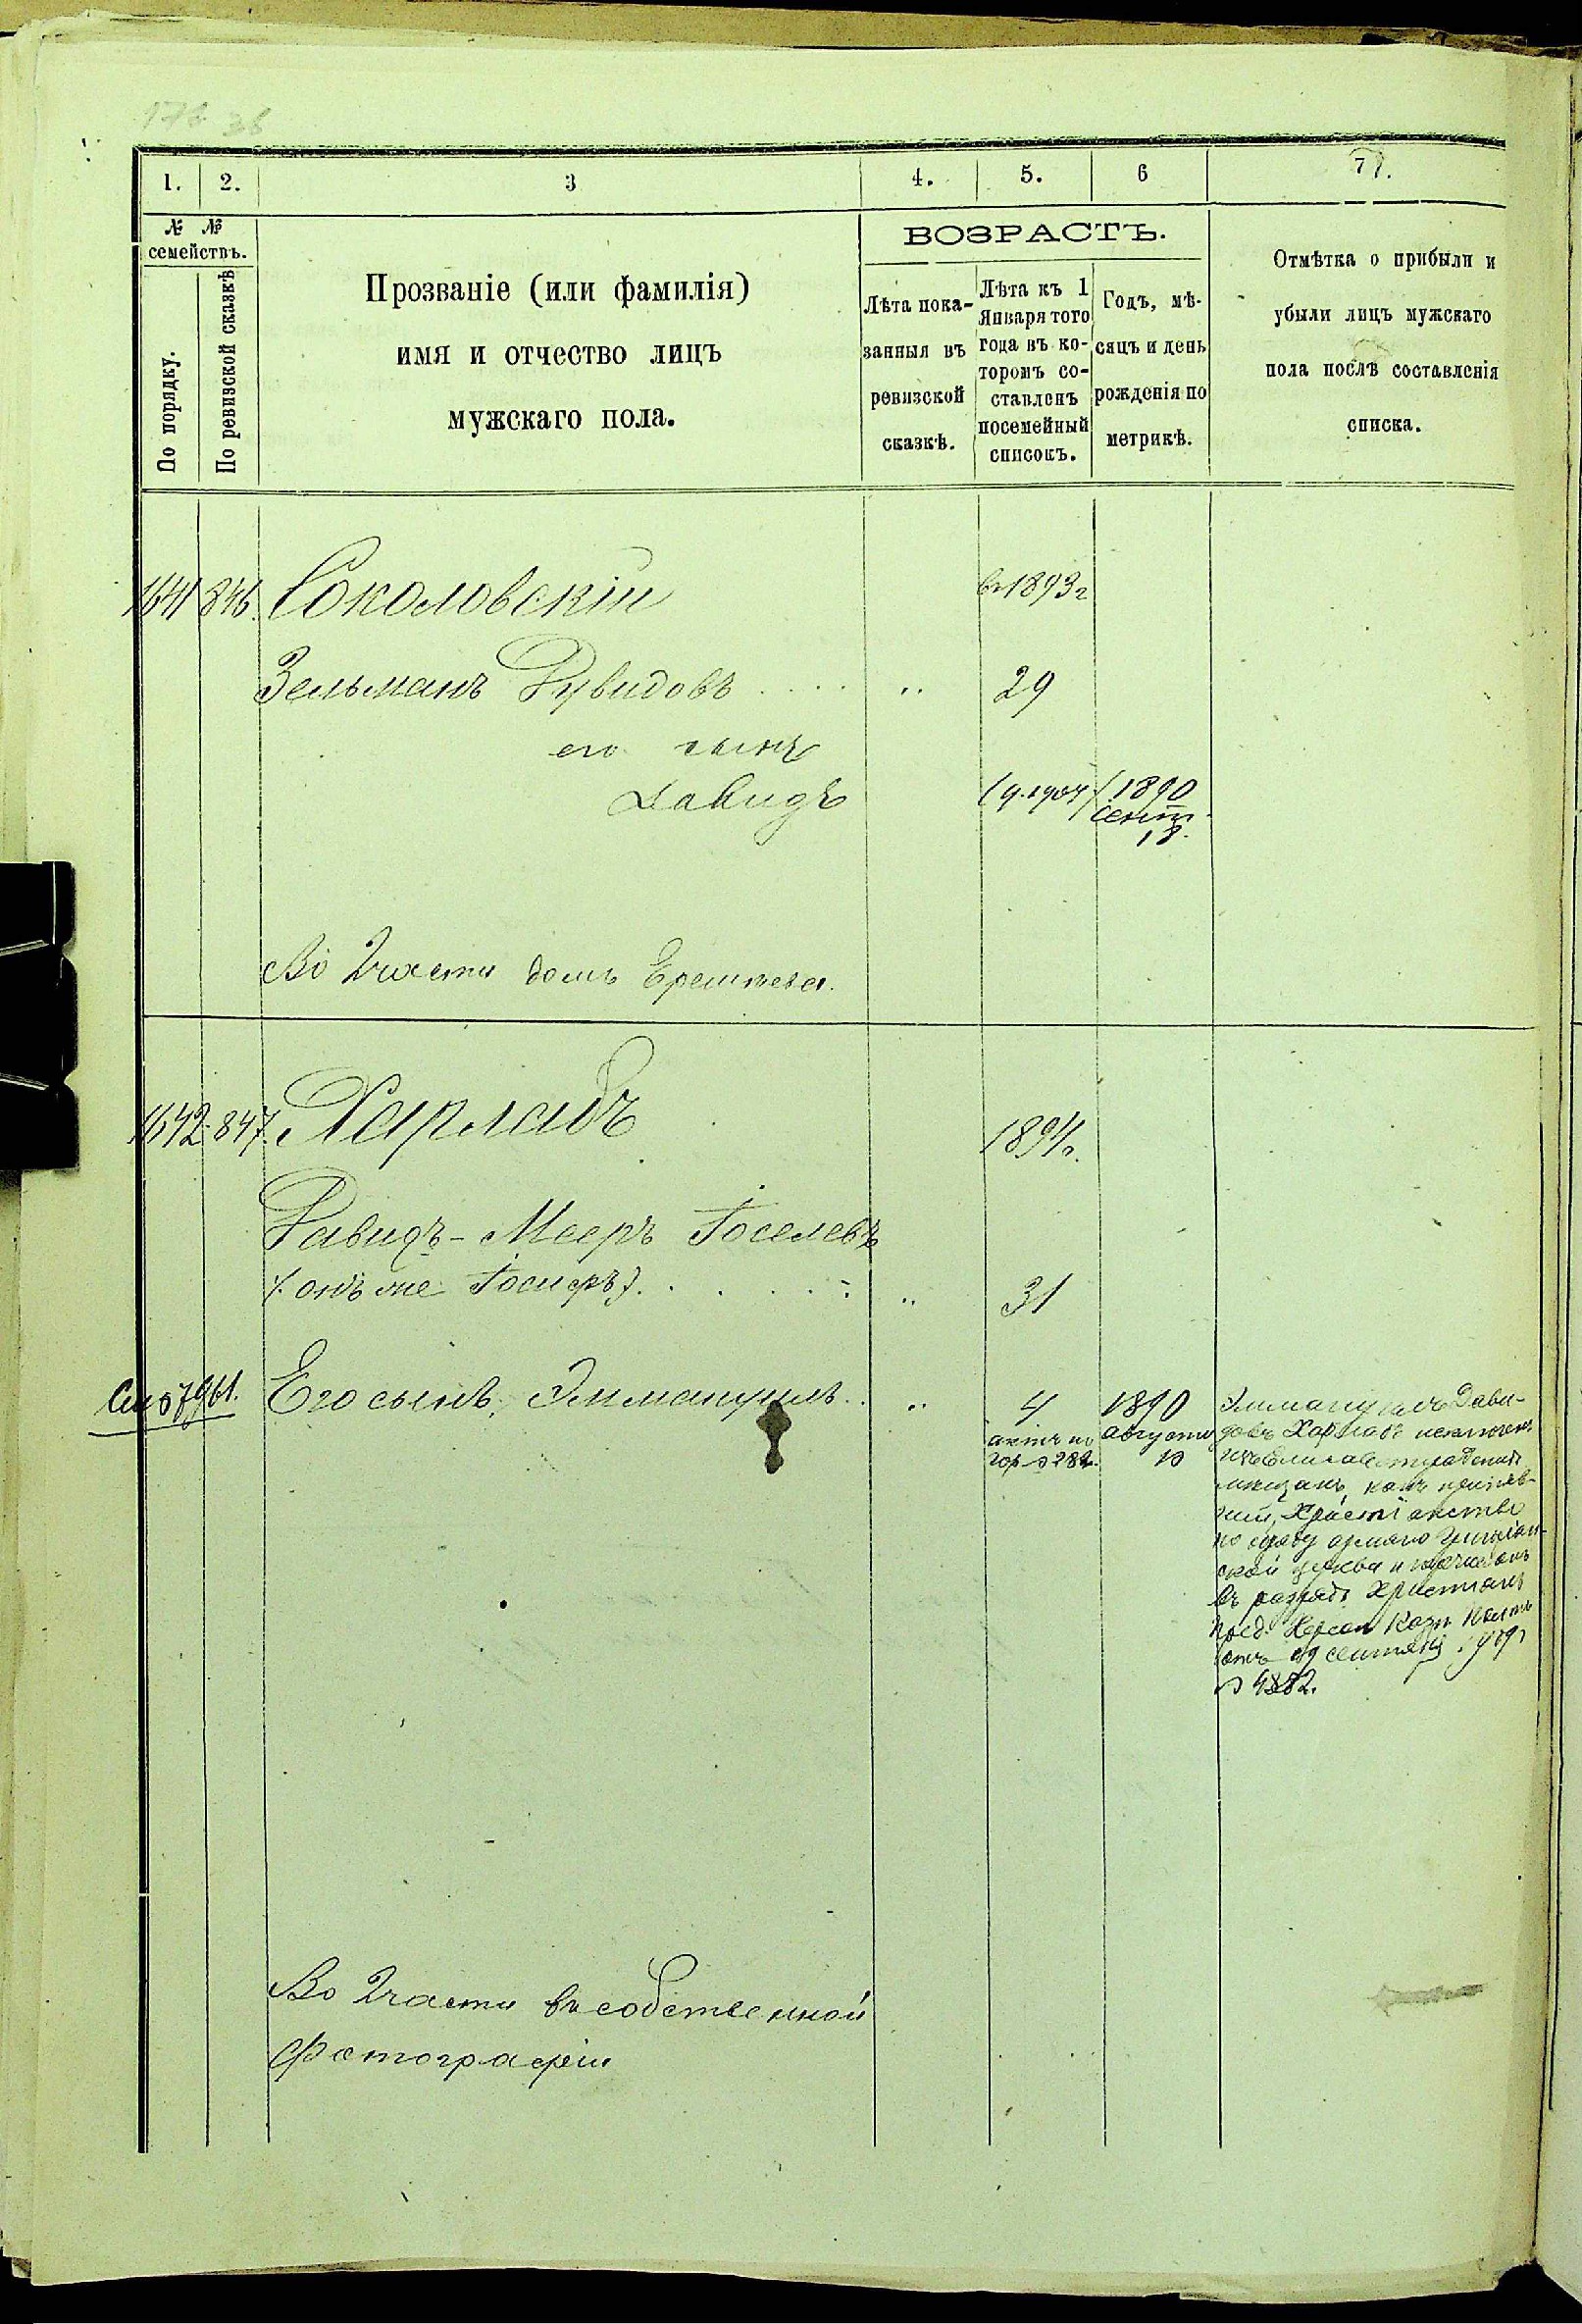 1. 2. 3 4. 5. 6 7.
№ №
семействъ.
По порядку.
По ревизской сказкѣ
Прозваніе (или фамилія)
имя и отчество лицъ
мужскаго пола.
ВОЗРАСТЪ.
Лѣта пока-
занныя въ
ревизской
сказкѣ.
Лѣта къ 1
Января того
года въ ко-
торомъ со-
ставленъ
посемейный
списокъ.
Годъ, мѣ-
сяцъ и день
рожденія по
метрикѣ.
Отмѣтка о прибыли и
убыли лицъ мужскаго
пола послѣ составленія
списка.
1641 846. Соколовскій въ 1893 г
Зельманъ Рувидовъ .. 29
его сынъ
Давидъ 1890
Сент.
18.
Во 2 части домъ
1642 847. Харлабъ 1894 г.
Давидъ-Мееръ Іоселевъ
(онъ же Іосифъ) .. 31
7961. Его сынъ, Эммануилъ .. 4 1890
августа
10
актъ по
гор № 282.
Эммануилъ Дави-
довъ Харлабъ исключенъ
изъ Елисаветградскихъ
мѣщанъ, какъ приняв-
шій Христіанство
по обряду армяно Григоріан-
ской церкви и перечисленъ
въ разрядъ Христіанъ
Пред. Херсон Казн Палаты
отъ 29 сентября
№ 4882.
Во 2 части въ собственной
фотографіи